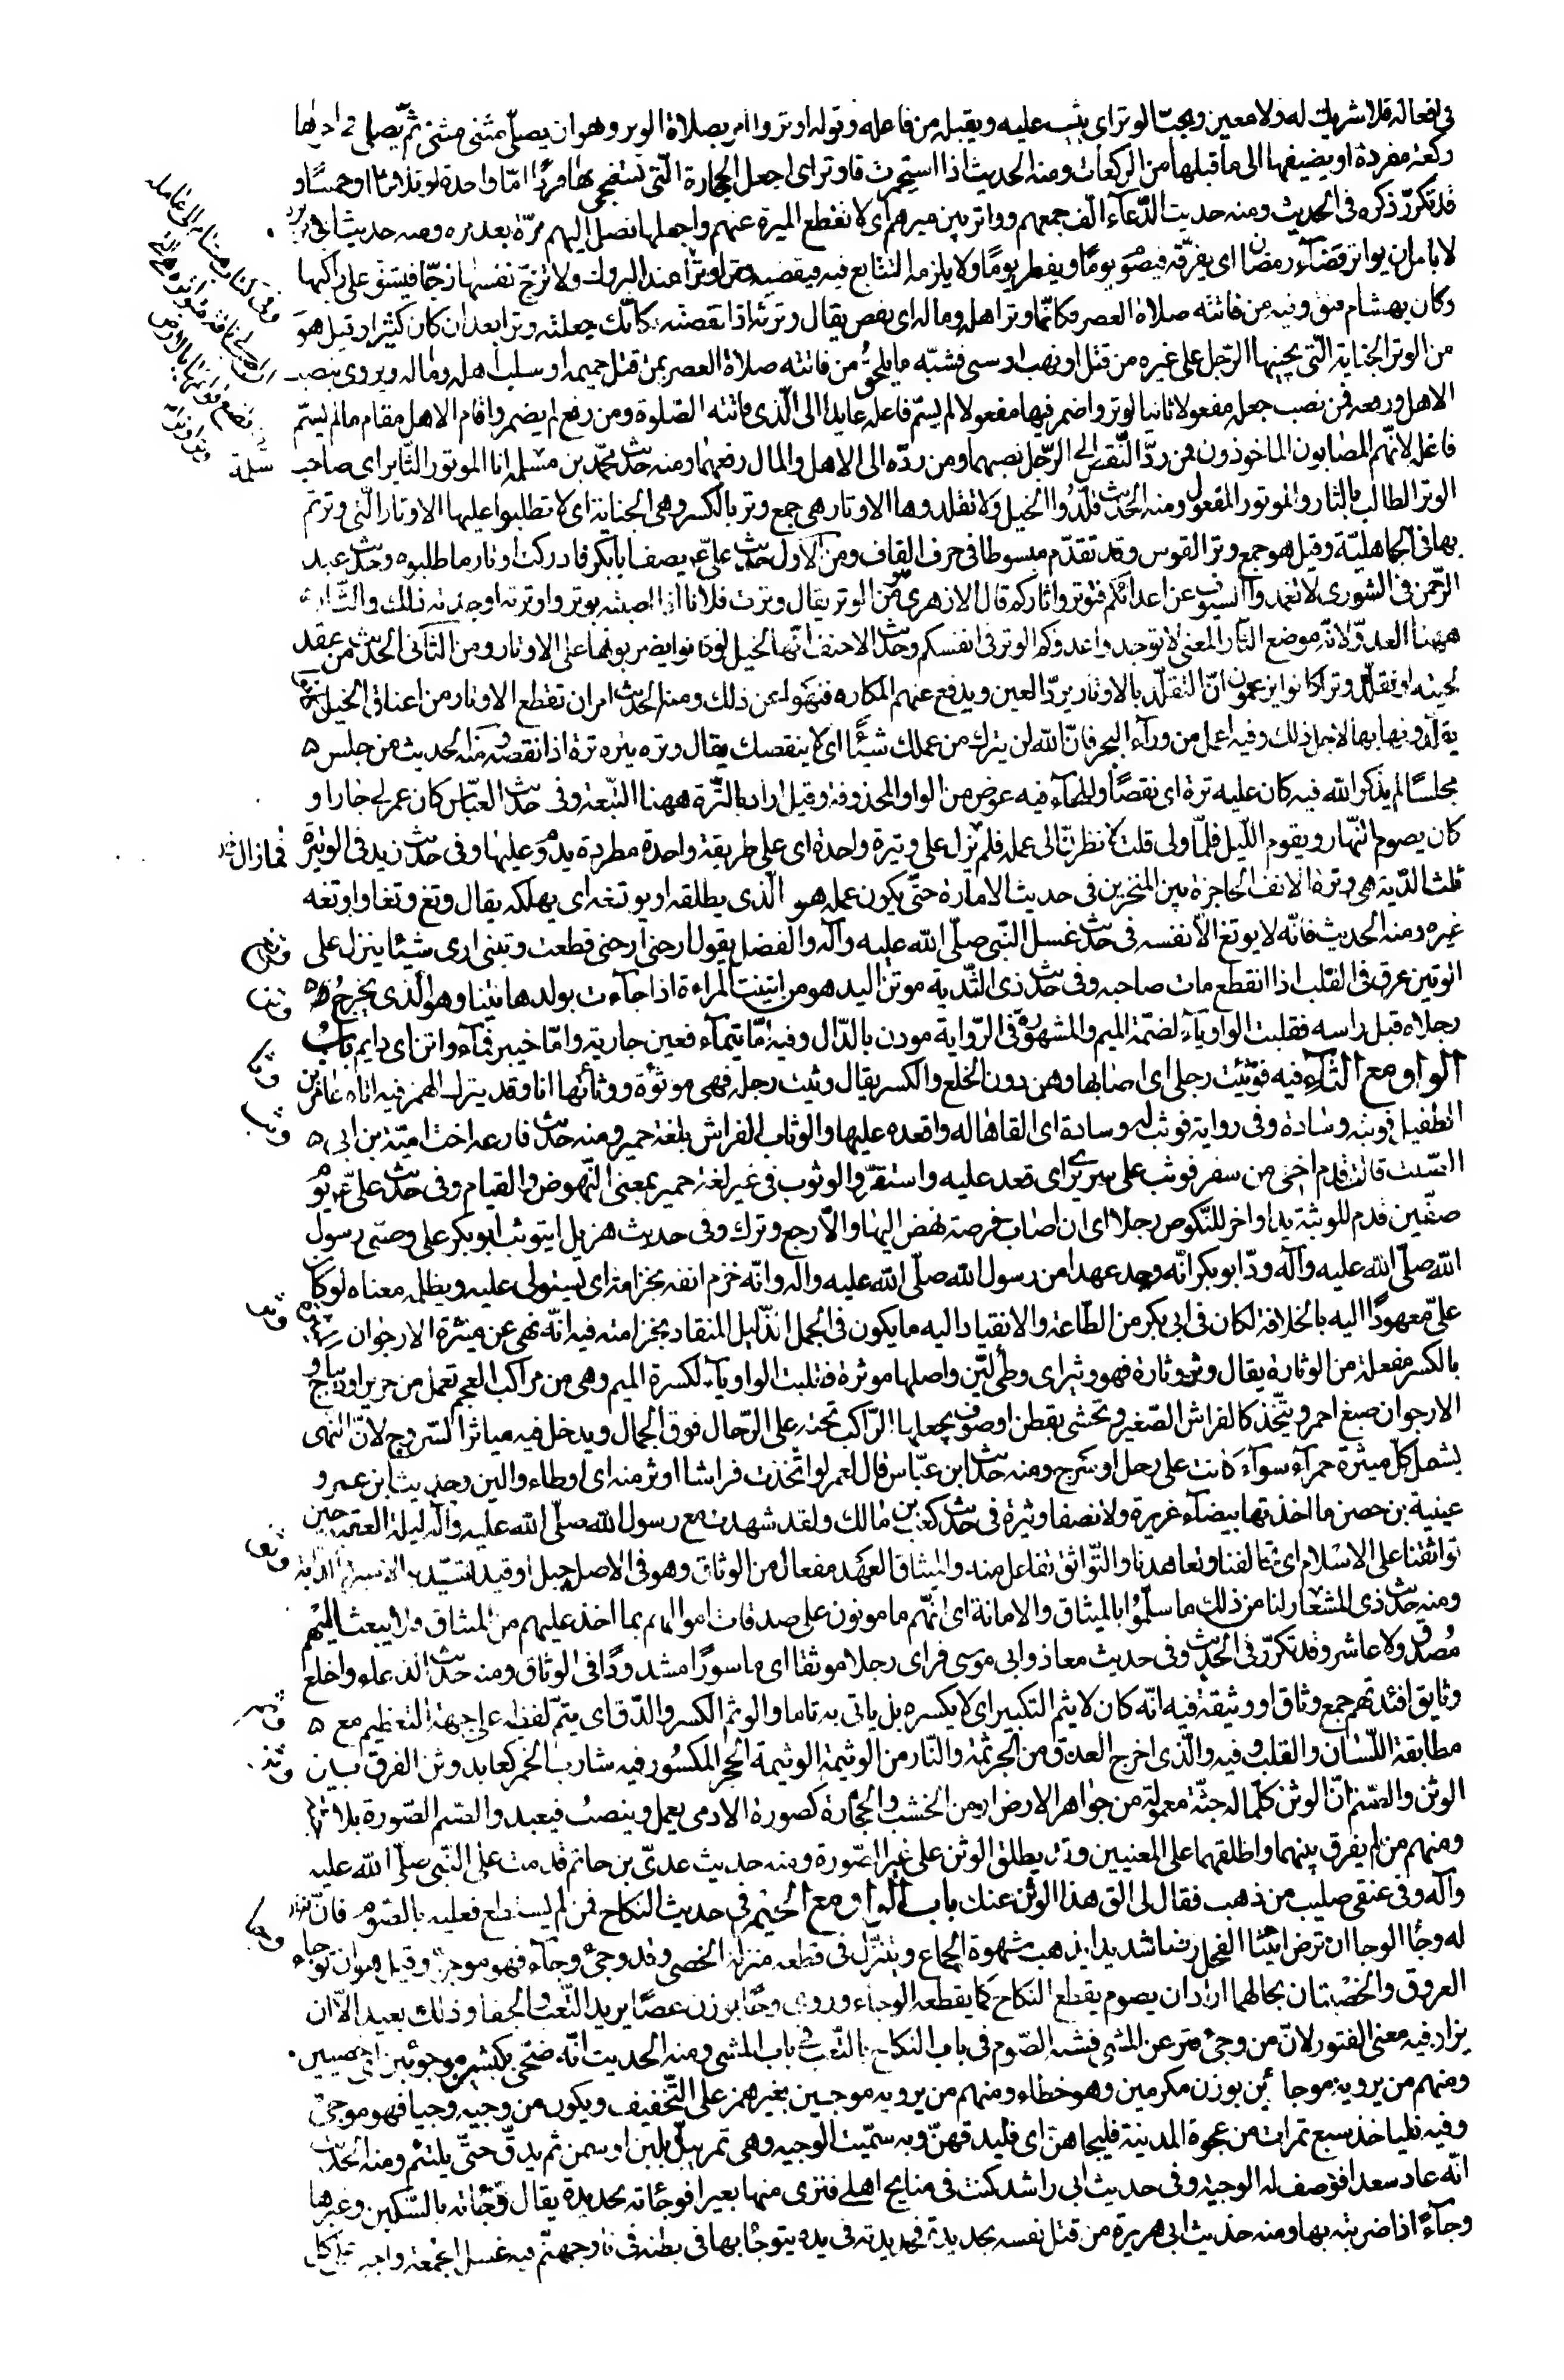 فى افعاله فلا شريك له ولا معين ويحبّ الوتر اى يثيب عليه ويقبله من فاعله وقوله اوتروا امر بصلاة الوتر وهو ان يصلّى مثنى مثنى ثمّ يصلى فى اخرها
ركعة مفردة او يضيفها الى ما قبلها من الركعات ومنه الحديث اذا استجمرت فاوتر اى اجعل الحجارة الّتى تستنجى بها فردًا امّا واحدة او ثلاثا او خمسًا و
قد تكرّر ذكره فى الحديث ومنه حديث الدّعآء الّف جمعهم وواتر بين ميرهم اى لا تقطع الميرة عنهم واجعلها تصل اليهم مرّة بعد مرة ومنه حديث ابى هريرة
لا باس ان يواتر قضآء رمضان اى يفرّقه فيصوم يومًا ويفطر يومًا ولا يلزمه التتابع فيه فيقضيه وترا وترا عند البروك ولا تزجّ نفسها زجّا فيشق على راكبها
وكان بهشام فتق وفيه من فاتته صلاة العصر فكانّما وتر اهله وماله اى نقص يقال وترته اذا نقصته فكانّك جعلته وترا بعد ان كان كثيرا وقيل هو
من الوتر الجناية الّتى يجنيها الرّجل على غيره من قتل او نهب او سبى فشبّه ما يلحق من فاتته صلاة العصر بمن قتل حميمه او سلب اهله وماله ويروى بنصب
الاهل ورفعه فمن نصب جعله مفعولا ثانيا لوتر واضمر فيها مفعولا لم يسمّ فاعله عايدا الى الّذى فاتته الصّلوة ومن رفع لم يضمر واقام الاهل مقام ما لم يسمّ
فاعله لانّهم المصابون الماخوذون فمن ردّ النّقص الى الرّجل نصبهما ومن ردّه الى الاهل والمال رفعهما ومنه حديث محمّد بن مسلمة انا الموتور الثّاير اى صاحب
الوتر الطالب بالثار والموتور المفعول ومنه الحديث قلّدوا الخيل ولا تقلدوها الاوتار هى جمع وتر بالكسر وهى الجناية اى لا تطلبوا عليها الاوتار الّتى وترتم
بها فى الجاهليّة وقيل هو جمع وتر القوس وقد تقدّم مبسوطا فى حرف القاف ومن الاول حديث علىّ يصف ابابكر فادركت اوتار ما طلبوه وحديث عبد
الرّحمن فى الشورى لا تغمدوا السيوف عن اعدائكم فتوتروا ثاركم قال الازهرى هو من الوتر يقال وترت فلانا اذا اصبته بوتر واوترته اوجدته ذلك والثّار
ههنا العدوّ لانّه موضع الثار المعنى لا توجدوا عدوكم الوتر فى انفسكم وحديث الاحنف انّها الخيل لو كانوا يضربونها على الاوتار ومن الثانى الحديث من عقد
لحيته او تقلّد وترا كانوا يزعمون انّ التقلّد بالاوتار يردّ العين ويدفع عنهم المكاره فنهوا عن ذلك ومنه الحديث امر ان تقطع الاوتار من اعناق الخيل كانوا
يقلّدونها بها لاجل ذلك وفيه اعمل من ورآء البحر فانّ الله لن يترك من عملك شيئًا اى لا ينقصك يقال وتره يتره ترة اذا نقصه ومنه الحديث من جلس
مجلسًا لم يذكر الله فيه كان عليه ترة اى نقصًا والهآء فيه عوض من الواو المحذوفة وقيل اراد بالتّرة ههنا التّبعة وفى حديث العبّاس كان عمر لى جارا و
كان يصوم النّهار ويقوم اللّيل فلمّا ولى قلت لانظرنّ الى عمله فلم يزل على وتيرة واحدة اى على طريقة واحدة مطردة يدوم عليها وفى حديث زيد فى الوترة
ثلث الدّية هى وترة الانف الحاجزة بين المنخرين فى حديث الامارة حتّى يكون عمله هو الّذى يطلقه او يوتغه اى يهلكه يقال وتغ وتغا واوتغه
غيره ومنه الحديث فانّه لا يوتغ الّا نفسه فى حديث غسل النّبى صلّى الله عليه وآله والفضل يقول ارحنى ارحنى قطعت وتينى ارى شيئا ينزل على
الوتين عرق فى القلب اذا انقطع مات صاحبه وفى حديث ذى الثّدية موتن اليد هو من ايتنت المراة اذا جآءت بولدها يتنا وهو الّذى يخرج
رجلاه قبل راسه فقلبت الواو يآء لضمّة الميم والمشهور فى الرّواية مودن بالدّال وفيه امّا تيمآء فعين جارية وامّا خيبر فمآء واتن اى دايم باب
الواو مع الثّآء فيه فوثئت رجلى اى اصابها وهن دون الخلع والكسر يقال وثئت رجله فهى موثوءة ووثأتها انا وقد يترك الهمز فيه اتاه عامر بن
الطفيل فوثّبه وسادة وفى رواية فوثب له وسادة اى القاها له واقعده عليها والوثاب الفراش بلغة حمير ومنه حديث فارعة اخت اميّة بن ابى
الصّلت قالت قدم اخى من سفر فوثب على سريرى اى قعد عليه واستقرّ والوثوب فى غير لغة حمير بمعنى النّهوض والقيام وفى حديث علىّ يوم
صفّين قدم للوثبة يدا واخر للنّكوص رجلا اى ان اصاب فرصة نهض اليها والّا رجع وترك وفى حديث هزيل ايتوثب ابوبكر على وصىّ رسول
الله صلّى الله عليه وآله ودّ ابوبكر انّه وجد عهدا من رسول الله صلّى الله عليه وآله وانّه خزم انفه بخزامة اى يستولى عليه ويظلمه معناه لو كان
علىّ معهودًا اليه بالخلافة لكان فى ابى بكر من الطّاعة والانقياد اليه ما يكون فى الجمل الذّليل المنقاد بخزامته فيه انّه نهى عن ميثرة الارجوان
بالكسر مفعلة من الوثارة يقال وثر وثارة فهو وثير اى وطىء ليّن واصلها موثرة فقلبت الواو يآء لكسرة الميم وهى من مراكب العجم تعمل من حرير او ديباج و
الارجوان صبغ احمر ويتّخذ كالفراش الصّغير وتحشى بقطن او صوف يجعلها الرّاكب تحته على الرّحال فوق الجمال ويدخل فيه مياثر السّروج لانّ النّهى
يشمل كلّ ميثرة حمرآء سوآء كانت على رحل او سرج ومنه حديث ابن عبّاس قال لعمر لو اتّخذت فراشا اوثر منه اى اوطاء والين وحديث ابن عمر و
عيينة بن حصن ما اخذتها بيضآء غريرة ولا نصفا وثيرة فى حديث كعب بن مالك ولقد شهدت مع رسول الله صلّى الله عليه وآله ليلة العقبة حين
تواثقنا على الاسلام اى تحالفنا وتعاهدنا والتّواثق تفاعل منه والميثاق العهد مفعال من الوثاق وهو فى الاصل حبل او قيد يشدّ به الاسير او الدّابة
ومنه حديث ذى المشعار لنا من ذلك ما سلّموا بالميثاق والامانة اى انّهم مامونون على صدقات اموالهم بما اخذ عليهم من الميثاق ولا يبعث اليهم
مصدّق ولا عاشر وقد تكرّر فى الحديث وفى حديث معاذ وابى موسى فراى رجلا موثقا اى ماسورًا مشدودًا فى الوثاق ومنه حديث الدعاء واخلع
وثايق افئدتهم جمع وثاق او وثيقة فيه انّه كان لا يثم التكبير اى لا يكسره بل ياتى به تاما والوثم الكسر والدّق اى يتمّ لفظه على جهة التعظيم مع
مطابقة اللّسان والقلب وفيه والّذى اخرج العذق من الجريمة والنّار من الوثيمة الوثيمة الحجر المكسور فيه شارب الخمر كعابد وثن الفرق بين
الوثن والصّنم انّ الوثن كلّما له جثّة معمولة من جواهر الارض او من الخشب والحجارة كصورة الادمى يعمل وينصب فيعبد والصّنم الصّورة بلا جثة
ومنهم من لم يفرق بينهما واطلقهما على المعنيين وقد يطلق الوثن على غير الصّورة ومنه حديث عدىّ بن حاتم قدمت على النّبى صلّى الله عليه
وآله وفى عنقى صليب من ذهب فقال لى الق هذا الوثن عنك باب الواو مع الجيم فى حديث النكاح فمن لم يستطع فعليه بالصّوم فانّه
له وجأ الوجا ان ترض انثيا الفحل رضا شديدا يذهب شهوة الجماع ويتنزّل فى قطعه منزلة الخصى وقد وجئ وجآء فهو موجوء وقيل هو ان توجاء
العروق والخصيتان بحالهما اراد ان يصوم يقطع النكاح كما يقطعه الوجاء وروى وجًا بوزن عصًا يريد التّعب والحفا وذلك بعيد الّا ان
يراد فيه معنى الفتور لانّ من وجئ فتر عن المشى فشبه الصّوم فى باب النكاح بالتّعب فى باب المشى ومنه الحديث انّه ضحّى بكبشين موجوئين اى خصيين
ومنهم من يرويه موجأين بوزن مكرمين وهو خطاء ومنهم من يرويه موجيين بغير همز على التّخفيف ويكون من وجيه وجيا فهو موجىّ
وفيه فلياخذ سبع تمرات من عجوة المدينة فليجاهنّ اى فليدقهنّ وبه سمّيت الوجيه وهى تمر يبلّ بلبن او سمن ثم يدقّ حتّى يلتئم ومنه الحديث
انّه عاد سعدا فوصف له الوجيئة وفى حديث ابى راشد كنت فى منايح اهلى فنزى منها بعير فوجأته بحديدة يقال وجأته بالسّكين وغيرها
وجآء اذا ضربته بها ومنه حديث ابى هريرة من قتل نفسه بحديدة فحديدته فى يده يتوجّأ بها فى بطنه فى نار جهنّم فيه غسل الجمعة واجب على كل